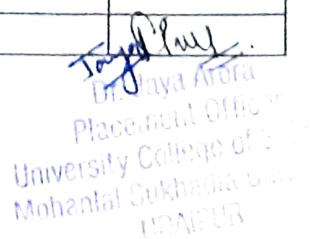 Dr. Jaya Arora
Placement Officer
University College of
Mohanlal Sukhadia
UDAIPUR